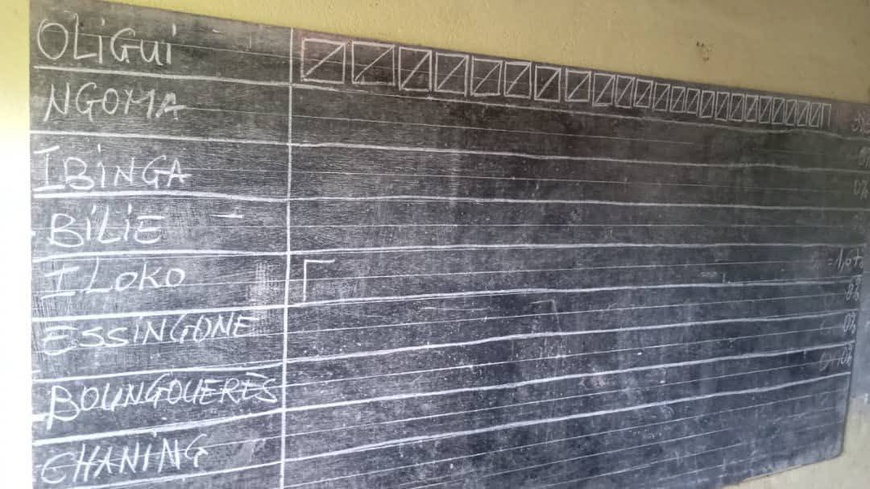 OLiGUi
NGOMA
IBiNGA
BiLiE
ILOKO
ESSiNGONE
BOUNGOUERÈS
CHANING